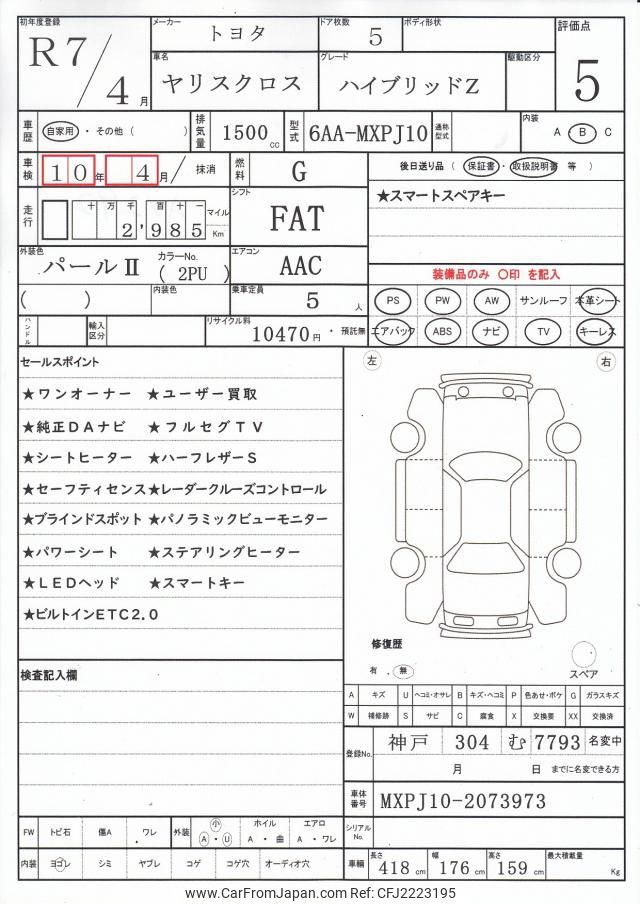 初年度登録 メーカー トヨタ ドア枚数 5 ボディ形状 評価点
R7/4月 車名 ヤリスクロス グレード ハイブリッドZ 駆動区分 5
車歴 自家用・その他( ) 排気量 1500cc 型式 6AA-MXPJ10 通称型式 内装 A・B C
車検 10年 4月/抹消 燃料 G 後日送り品(保証書・取扱説明書 等)
★スマートスペアキー
走行 十万千百十一 2,985 マイル Km シフト FAT
外装色 パールⅡ カラーNo. (2PU) エアコン AAC 装備品のみ ○印 を記入
( ) 内装色 乗車定員 5人 PS PW AW サンルーフ 本革シート
ハンドル 輸入区分 リサイクル料 10470円・預託無 エアバック ABS ナビ TV キーレス
セールスポイント 左 右
★ワンオーナー ★ユーザー買取
★純正DAナビ ★フルセグTV
★シートヒーター ★ハーフレザーS
★セーフティセンス★レーダークルーズコントロール
★ブラインドスポット★パノラミックビューモニター
★パワーシート ★ステアリングヒーター
★LEDヘッド ★スマートキー
★ビルトインETC2.0
修復歴
有・無 スペア
検査記入欄
A キズ U ヘコミ・オサレ B キズ・ヘコミ P 色あせ・ボケ G ガラスキズ
W 補修跡 S サビ C 腐食 X 交換要 XX 交換済
登録No. 神戸 304 む 7793 名変中
月 日 までに名変できる方
車体番号 MXPJ10-2073973
FW トビ石 傷A ワレ 外装 小 A・U ホイル A・曲 エアロ A・ワレ シリアルNo.
内装 ヨゴレ シミ ヤブレ コゲ コゲ穴 オーディオ穴 車輛 長さ 418cm 幅 176cm 高さ 159cm 最大積載量 Kg
www.CarFromJapan.com Ref: CFJ2223195